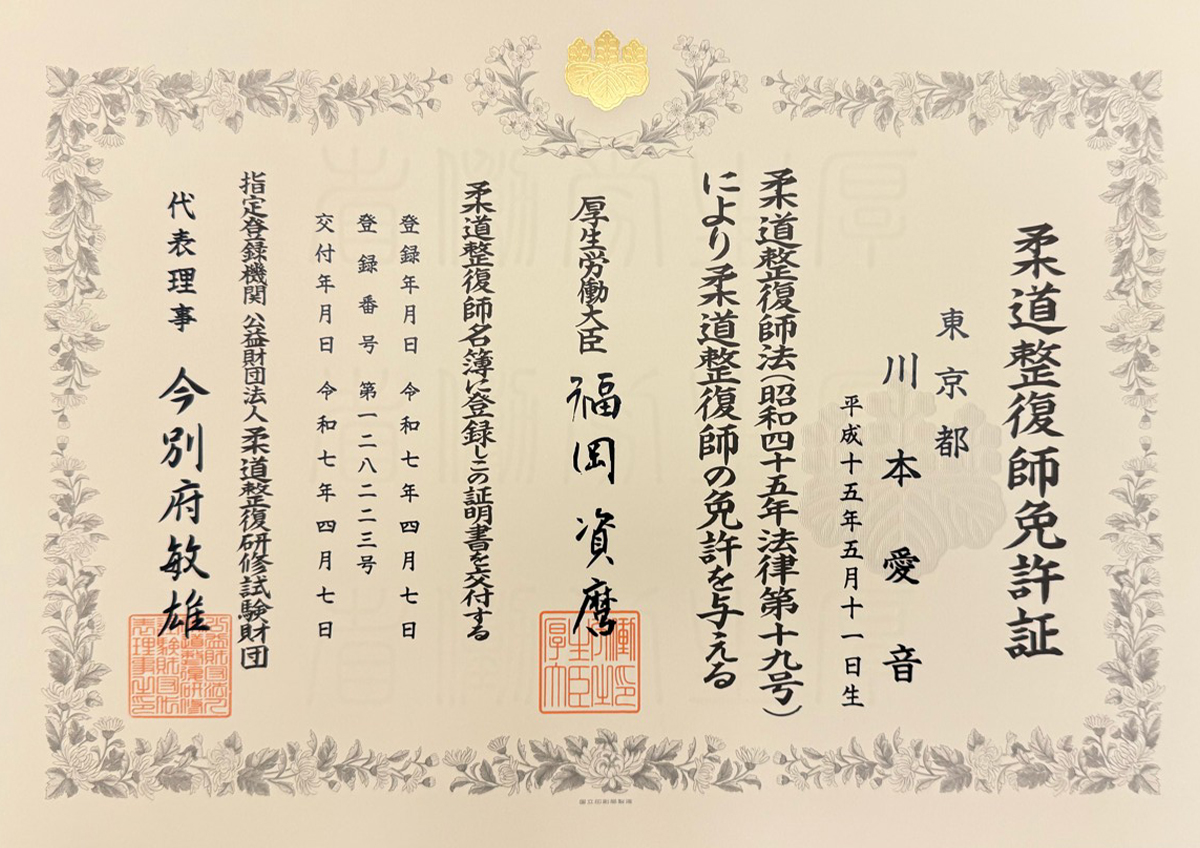 柔道整復師免許証
東京都
川本愛音
平成十五年五月十一日生
柔道整復師法(昭和四十五年法律第十九号)
により柔道整復師の免許を与える
厚生労働大臣 福岡資麿
柔道整復師名簿に登録しこの証明書を交付する
登録年月日 令和七年四月七日
登録番号 第一二八二二三号
交付年月日 令和七年四月七日
指定登録機関 公益財団法人 柔道整復研修試験財団
代表理事 今別府敏雄